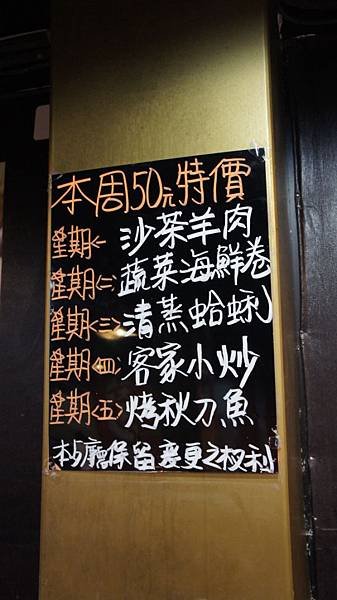 本周50元特價
星期<一>沙茶羊肉
星期<二>蔬菜海鮮卷
星期<三>清蒸蛤蜊
星期<四>客家小炒
星期<五>烤秋刀魚
本餐廳保留變更之权利